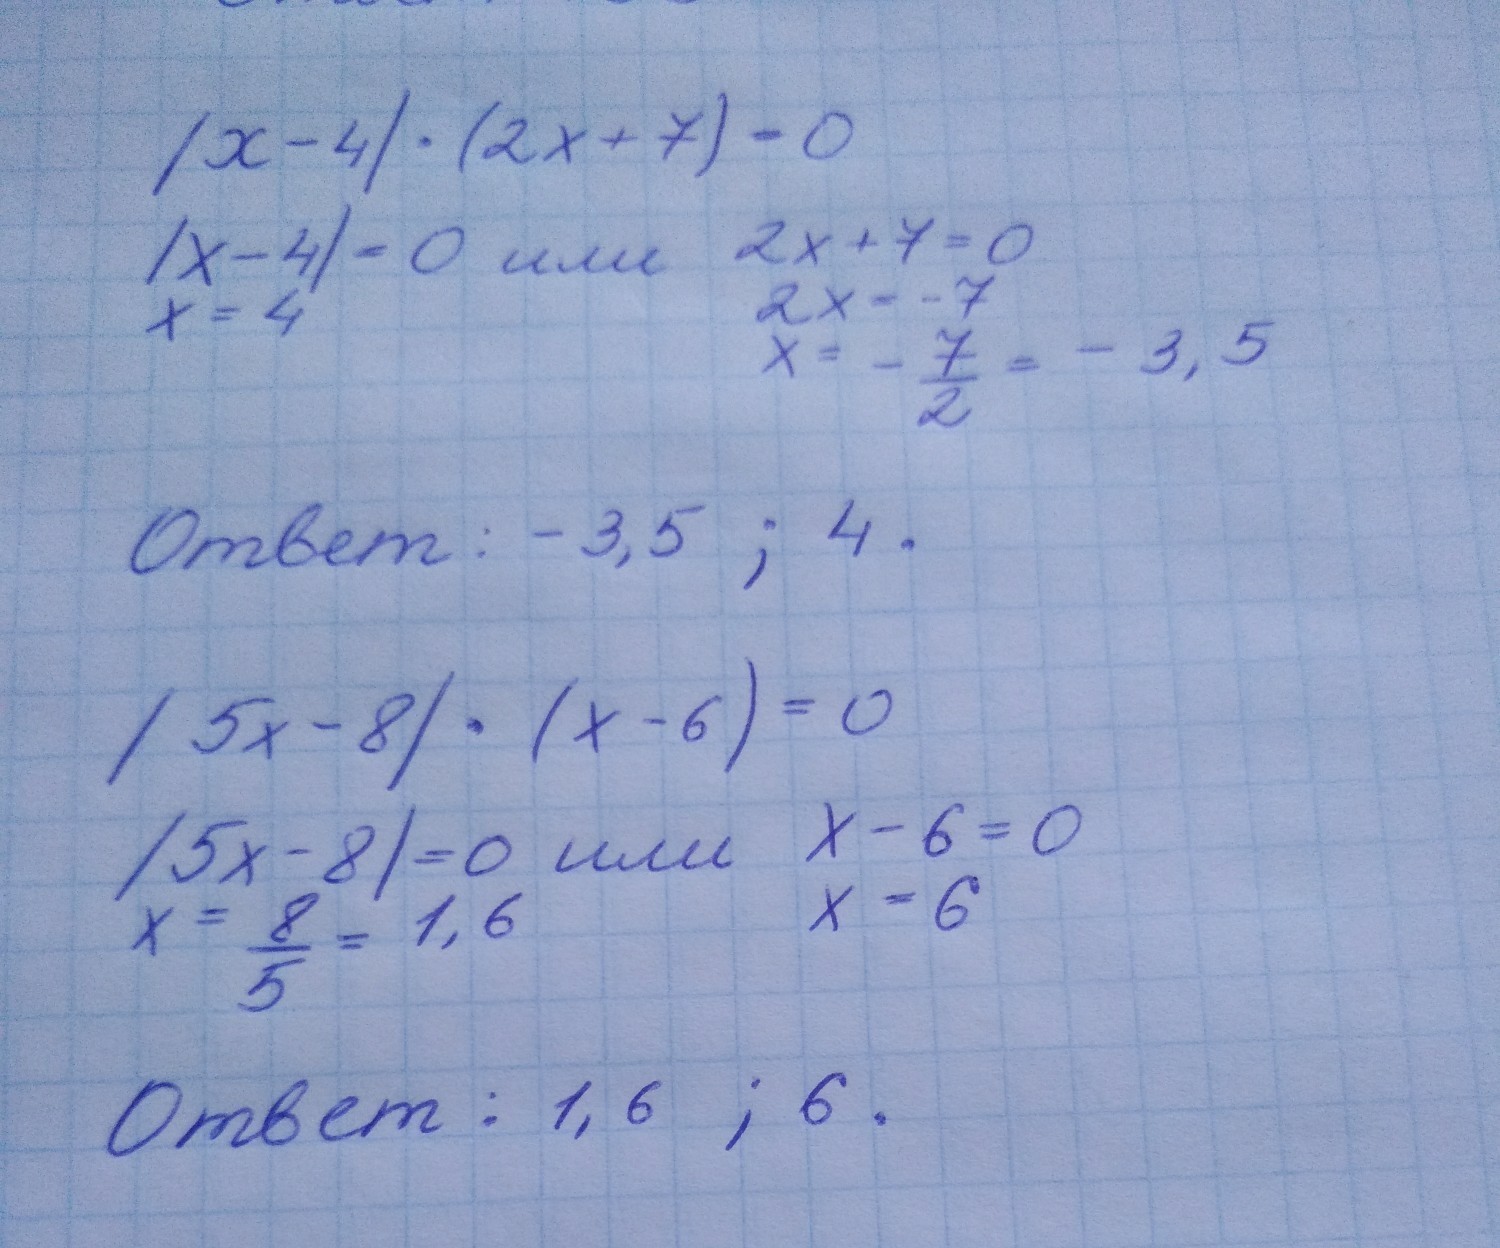 |x-4|·(2x+7)=0
|x-4|=0 или 2x+7=0
x=4 2x=-7
x=-7/2=-3,5
Ответ: -3,5 ; 4.
|5x-8|·(x-6)=0
|5x-8|=0 или x-6=0
x=8/5=1,6 x=6
Ответ: 1,6 ; 6.